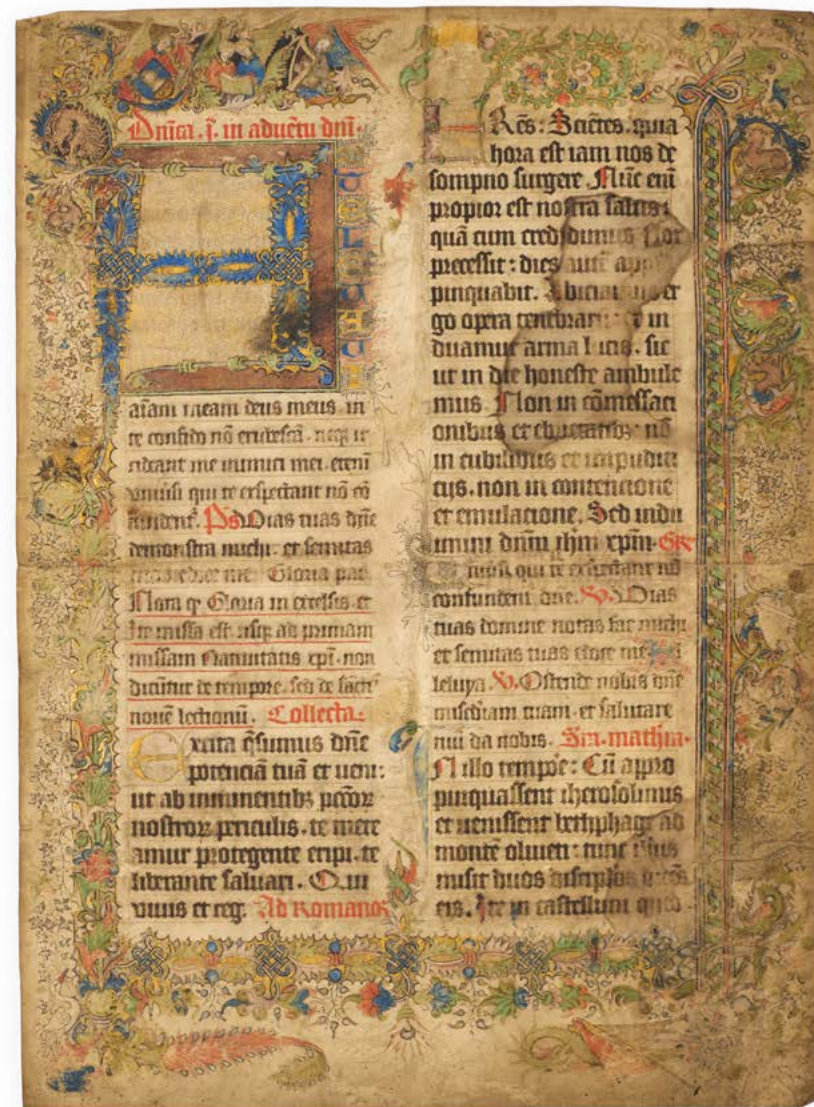 Dn̄ica .i. in aduētu dn̄i.
A
aīam meam deus meus in
te confido nō erubescā. neqꝫ ir
rideant me inimici mei. eteni
uniūsi qui te exspectant nō cō
fundent᷒. Ps Uias tuas dn̄e
demonstra michi. et semitas
me Gloria pat
Nota qꝫ Gloria in excelsis et
Ite missa est usqꝫ ad primam
missam Natiuitatis xp̄i. non
dicūtur de tempore. sed de sāct᷒
nouē lectionū. Collecta.
Excita q̄sumus dn̄e
potenciā tuā et ueni:
ut ab imminentibꝫ pcc̄oꝝ
nostroꝝ periculis. te mere
amur protegente eripi. te
liberante saluari. Q ui
viuis et reg. Ad Romanos
FRēs: Sciētes. quia
hora est iam nos de
sompno surgere. Nūc em̄
propior est nostra salus:
quā cum credidimus Nox
precessit: dies autē app
pinquabit. Abiciamus er
go opera tenebrarū: et in
duamur arma lucis. sic
ut in die honeste ambule
mus Non in cōmessaci
onibus et ebrietatibꝫ nō
in cubilibus et impudici
cijs. non in contencione
et emulacione. Sed indu
imini dn̄m ih̄m xp̄m. Gr̄
Uniūsi. qui te exspectant nō
confundent dn̄e. V. Uias
tuas domine notas fac michi
et semitas tuas edoce me
leluya V. Ostende nobis dn̄e
misc̄diam tuam. et salutare
tuū da nobis. Scd̄. mathm.
IN illo tempor̄e: Cū appro
pinquassent iherosolimis
et uenissent bethphage ad
montē oliueti: tunc ihūs
misit duos discip̄los dicēs
eis. Ite in castellum quod